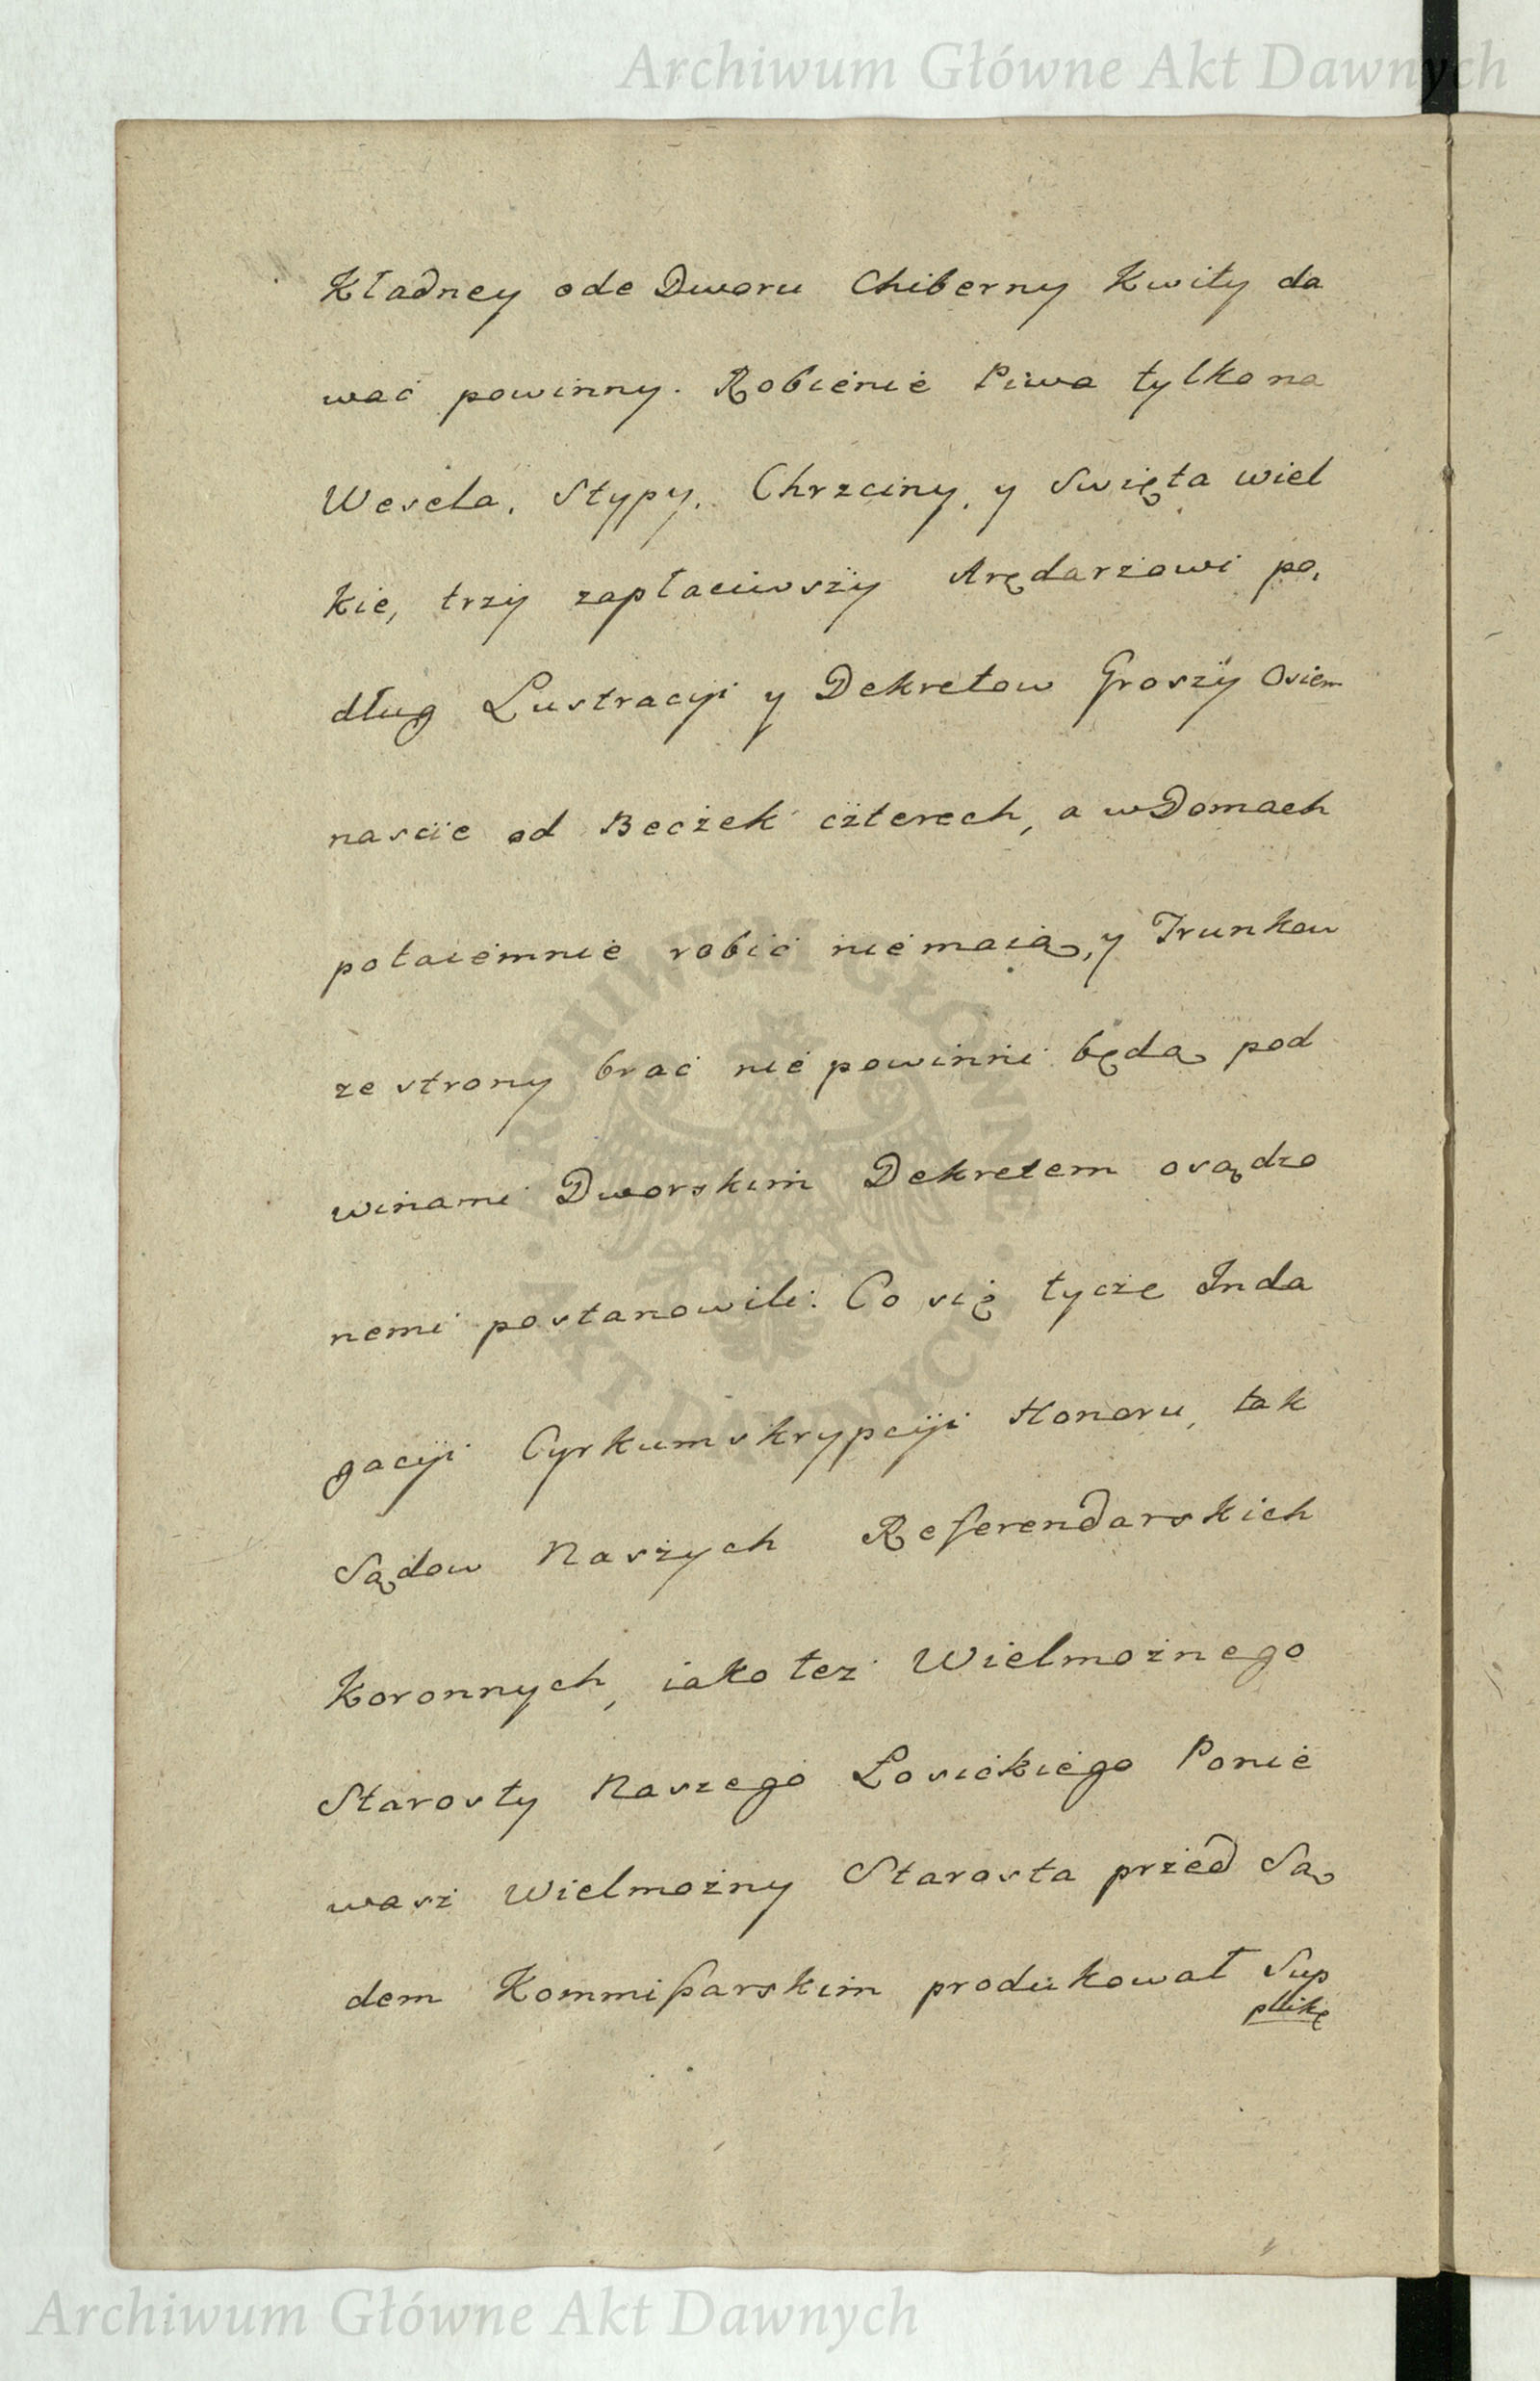 Archiwum Główne Akt Dawnych
Kładney ode Dworu Chiberny Kwity da
wać powinny. Robienie Piwa tylko na
Wesela, Stypy, Chrzciny, y Swięta wiel
kie, trzy zapłaciwszy Arędarzowi po,
dług Lustracyi y Dekretow Groszy Osiem
nascie od Beczek czterech, a w Domach
potaiemnie robić nie maią, y Trunkow
ze strony brać nie powinni będą pod
winami Dworskim Dekretem osądzo
nemi postanowili. Co się tycze Inda
gacyi Cyrkumskrypcyi Honoru, tak
Sądow Naszych Referendarskich
Koronnych, iako tez Wielmoznego
Starosty Naszego Łosickiego Ponie
wasz Wielmożny Starosta przed Są
dem Kommißarskim produkował Sup
plikę
ARCHIWUM GŁÓWNE
AKT DAWNYCH
Archiwum Główne Akt Dawnych